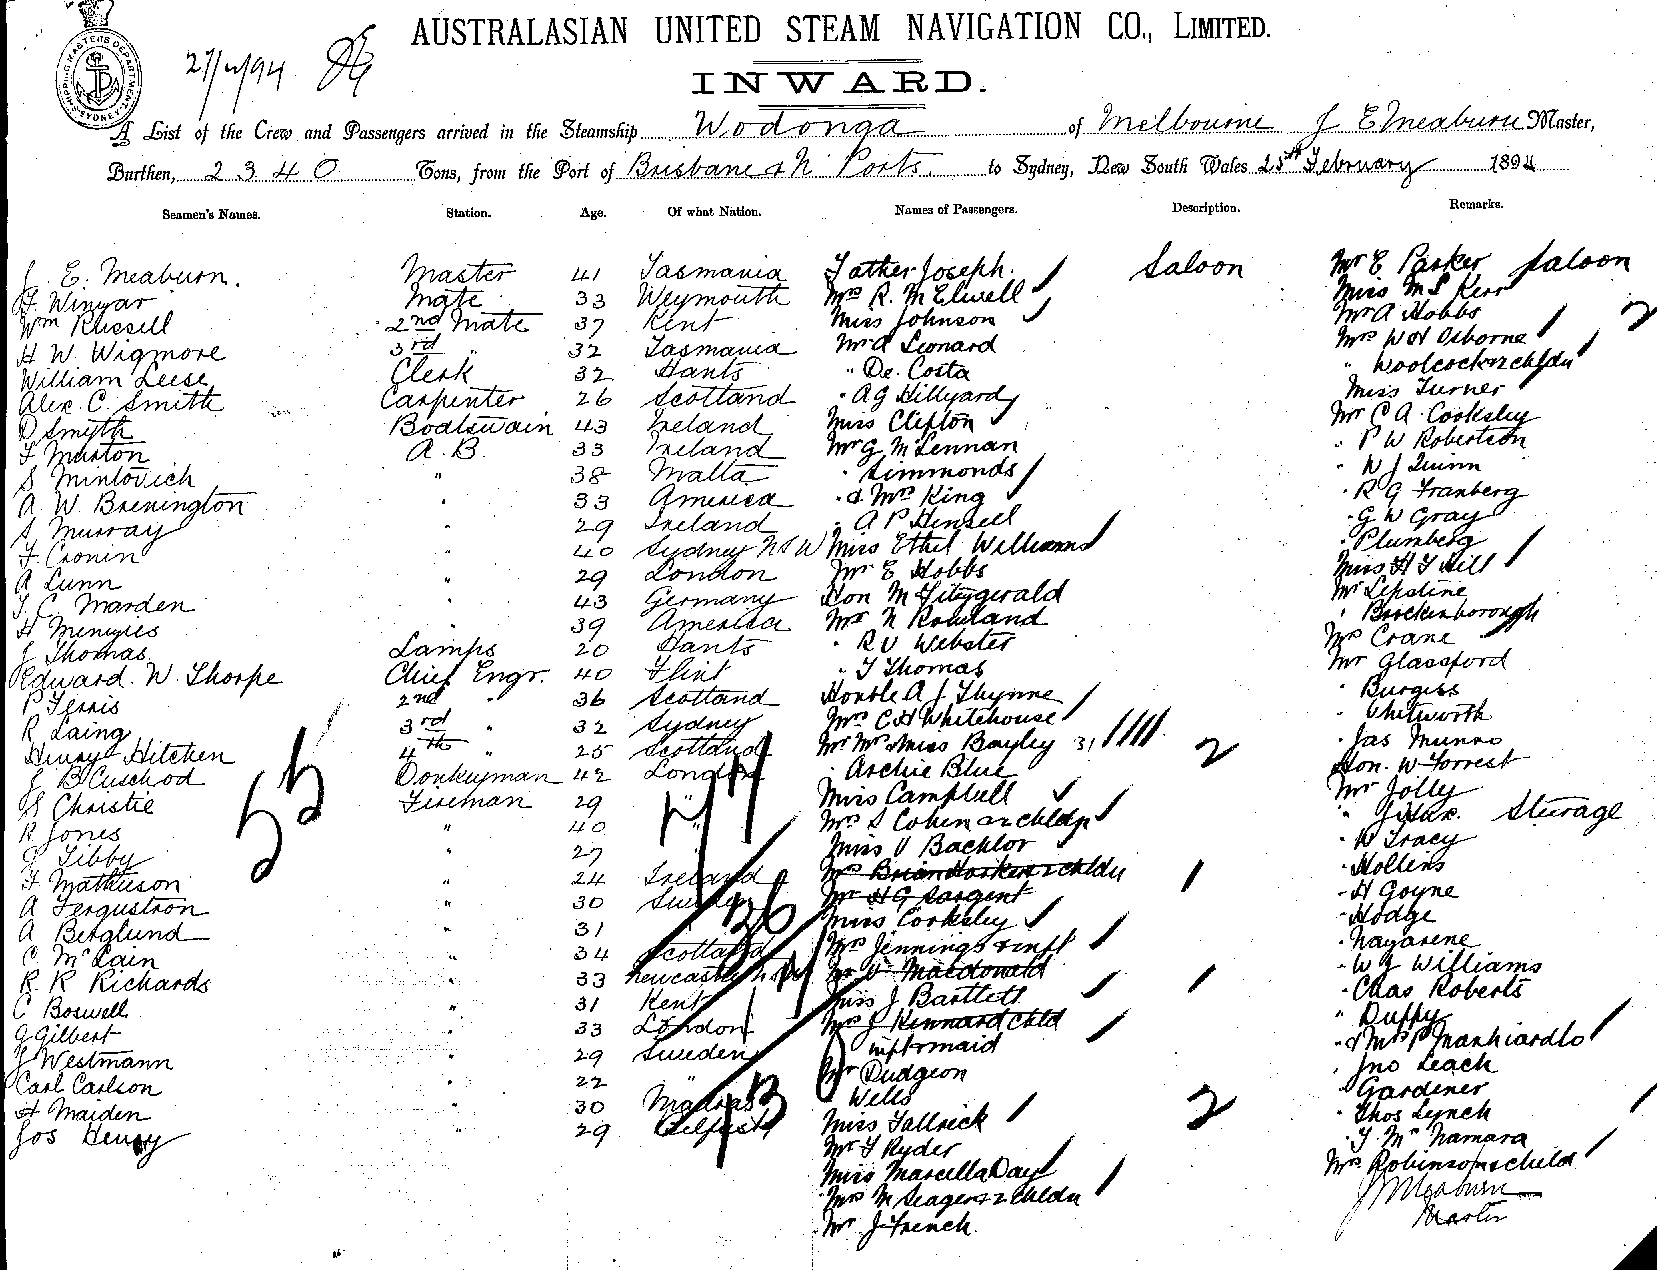 SHIPPING MASTERS DEPARTMENT. SYDNEY
27/2/94
AUSTRALASIAN UNITED STEAM NAVIGATION CO., LIMITED.
INWARD.
A List of the Crew and Passengers arrived in the Steamship Wodonga of Melbourne J E Meaburn Master,
Burthen, 2340 Tons, from the Port of Brisbane & N. Ports. to Sydney, New South Wales 25th February 1894
Seamen's Names. Station. Age. Of what Nation. Names of Passengers. Description. Remarks.
J. E. Meaburn. Master 41 Tasmania Father Joseph. Saloon Mr E Parker Saloon
F. Winyar Mate 33 Weymouth Mrs R. McElwell Miss M S Kerr
Wm Russell 2nd Mate 37 Kent Miss Johnson Mr A Hobbs 2
H W. Wigmore 3rd " 32 Tasmania Mr A Leonard Mrs W H Osborne
William Leese Clerk 32 Hants " De. Costa " Woolcock & 2 chldn
Alex. C. Smith Carpenter 26 Scotland " A G Hillyard Miss Turner
D Smyth Boatswain 43 Ireland Miss Clifton Mr C A Cooksley
F Marton A.B. 33 Ireland Mr G McLennan " P W Robertson
S Mintovich " 38 Malta " Simmonds " W J Quinn
A W. Brenington " 33 America " & Mrs King " R G Franberg
S Murray " 29 Ireland " A P Hensell " G W Gray
F. Cronin " 40 Sydney NSW Miss Ethel Williams " Plumberg
A Lunn " 29 London Mr E Hobbs Miss H F Hill
T. C. Marden " 43 Germany Hon M Fitzgerald Mr Lepstine
H Menyies " 39 America Mr N Rowland " Brockenborough
J Thomas Lamps 20 Hants " R V Webster Mrs Crane
Edward. W. Thorpe Chief Engr. 40 Flint " T Thomas Mr Glassford
P Ferris 2nd " 36 Scotland Honble A J Thynne " Burgiss
R Laing 3rd " 32 Sydney Mrs C H Whitehouse " Whitworth
Henry Hitchen 4th " 25 Scotland Mr Mrs & Miss Bayley 3 2 " Jas Munro
J B Cuschod Donkeyman 42 London " Archie Blue Hon. W Forrest
S Christie Fireman 29 " Miss Campbell Mr Jolly
R Jones " 40 " Mrs S Cohen & 2 chldn " Steerage
J Tibby " 27 Miss V Bachlor " W Tracy
F Mathieson " 24 Ireland Mrs Brian Hosken 2 chldn 1 " Hollins
A Fergustron " 30 Sweden Mr H G Sargent " H Goyne
A Berglund " 31 Miss Cooksley " Hodge
C McLain " 34 Scotland Mrs Jennings & inft " Nazarene
R R Richards " 33 Newcastle NSW Mr D Macdonald " W J Williams
C Boswell " 31 Kent Miss J Bartlett 1 " Chas Roberts
G Gilbert " 33 London Mrs J Kennard chld " Duffy
J Westmann " 29 Sweden inft & maid " & Mrs P Mankiardlo
Carl Carlson " 22 " Mr Dudgeon " Jno Leach
H Maiden " 30 Madras " Wells " Gardiner
Jos Henry " 29 Belfast Miss Fallrick 2 " Thos Lynch
Mr F Ryder " T. McNamara
Miss Marcella Day Mrs Robinson & child
Mrs M Seagers 2 chldn J E Meaburn
Mr J French Master